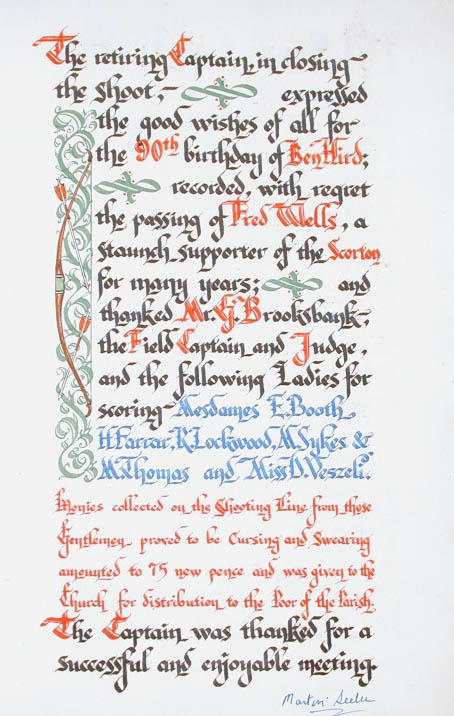 The retiring Captain, in closing
the shoot, expressed
the good wishes of all for
the 90th birthday of Ben Hird;
recorded, with regret
the passing of Fred Wells, a
staunch supporter of the Scorton
for many years; and
thanked Mr. G. Brooksbank,
the Field Captain and Judge,
and the following Ladies for
scoring Mesdames E. Booth,
H. Farrar, R. Lockwood, M. Sykes &
M. Thomas and Miss D. Veszeli.
Monies collected on the Shooting Line from those
Gentlemen proved to be Cursing and Swearing
amounted to 75 new pence and was given to the
Church for distribution to the Poor of the Parish.
The Captain was thanked for a
successful and enjoyable meeting.
Martin